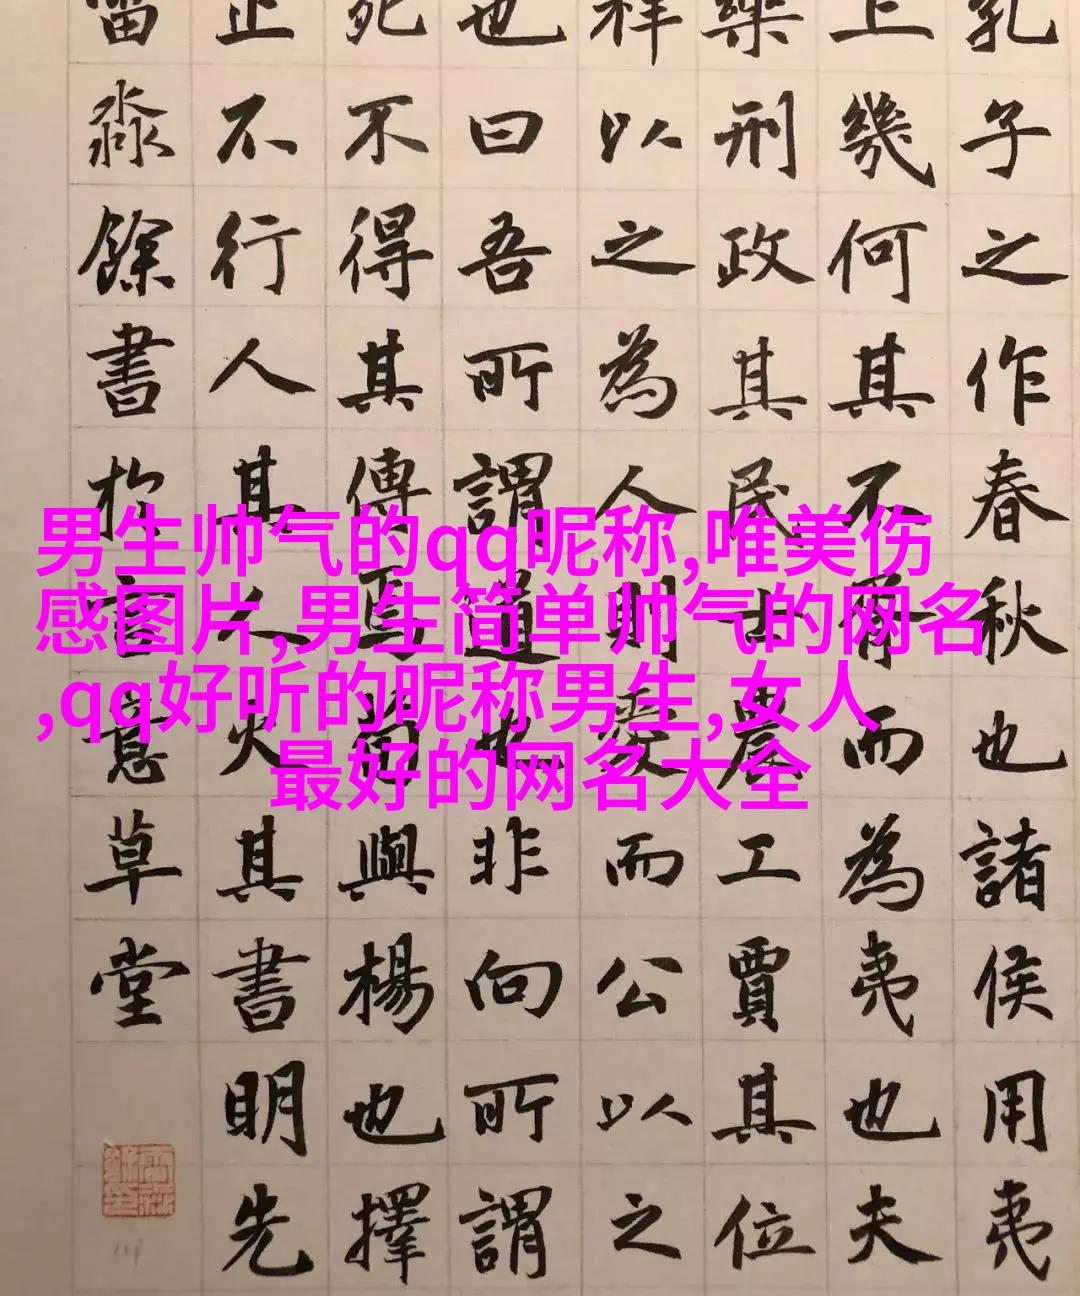 孔子之作春秋也諸侯用夷
上幾何其不胥而為夷也夫
樂刑政其民士農工賈其位
祥以之為人則愛而公以之
也曰吾所謂道也非向所謂
死不得其傳焉荀與楊也擇
正不行人其人火其書明先
淼餘書於意草堂
男生帅气的qq昵称,唯美伤
感图片,男生简单帅气的网名
,qq好听的昵称男生,女人
最好的网名大全